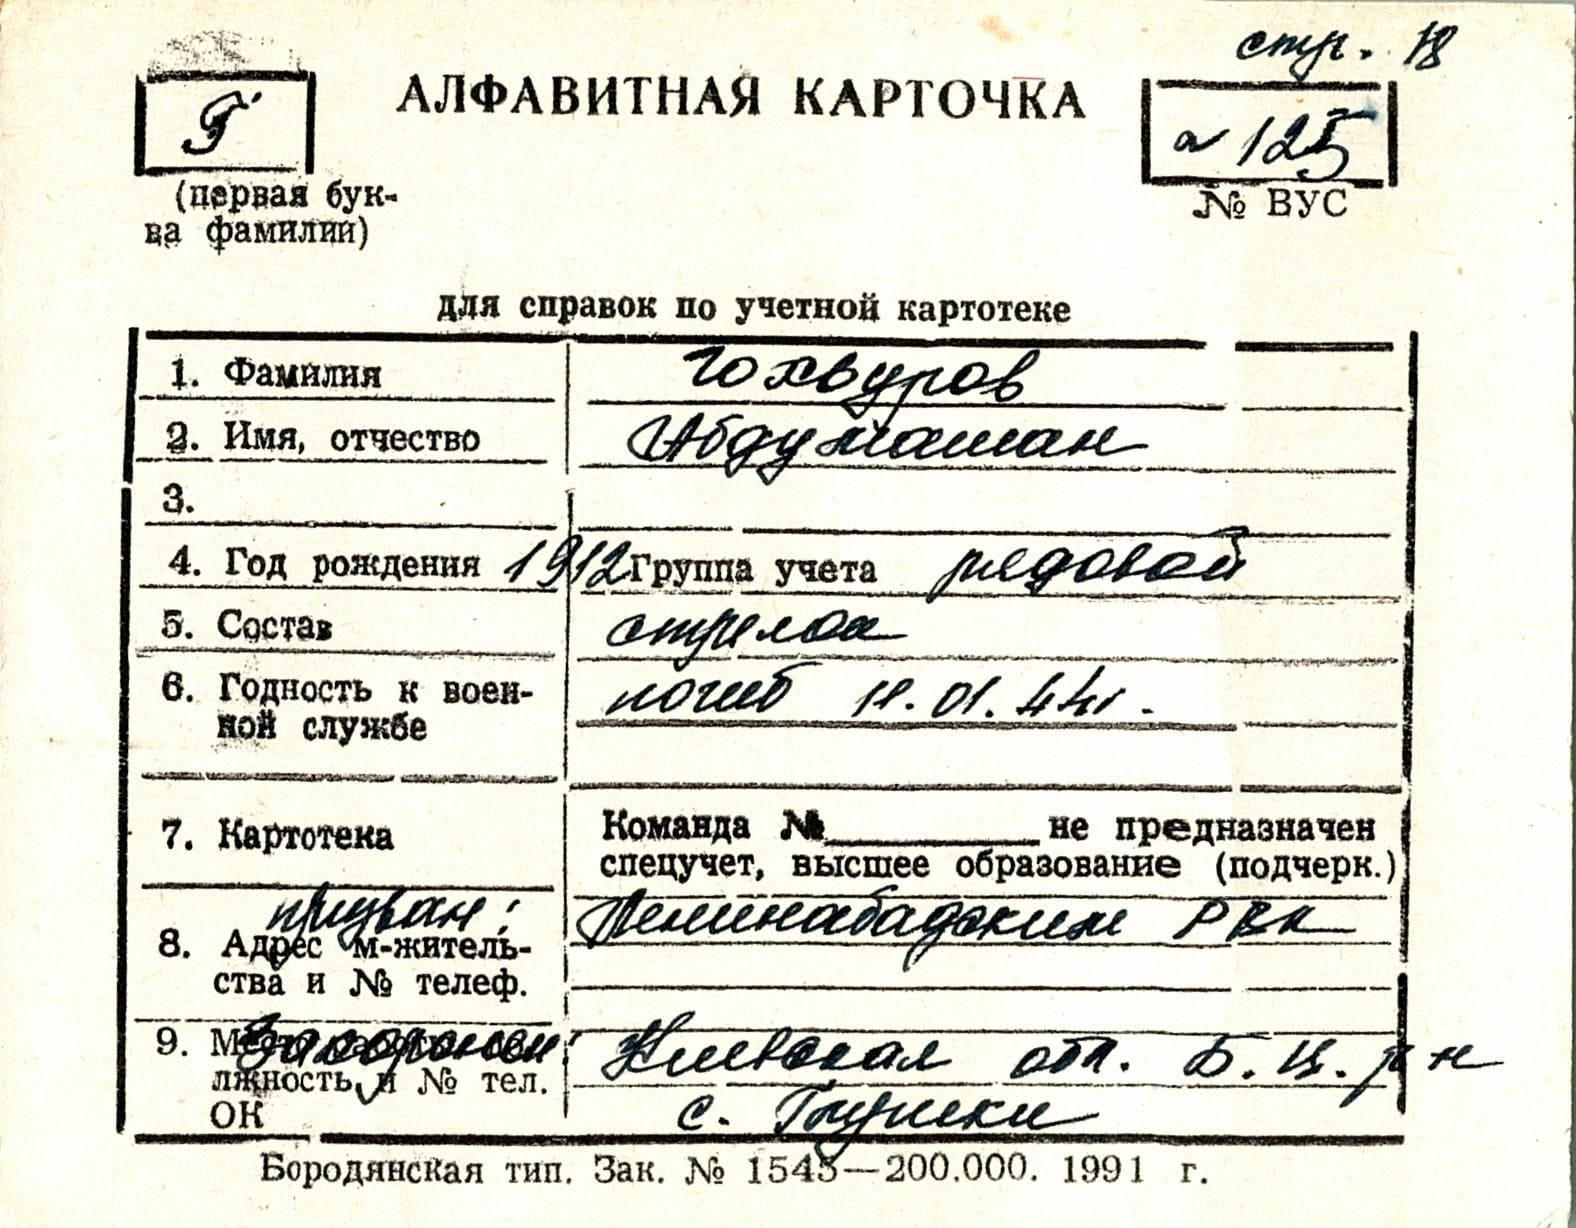 стр. 18
Г
АЛФАВИТНАЯ КАРТОЧКА
125
(первая бук-
ва фамилии)
№ ВУС
для справок по учетной картотеке
1. Фамилия Гохвуров
2. Имя, отчество Абдумаман
3.
4. Год рождения 1912 Группа учета рядовой
5. Состав стрелок
6. Годность к воен-
ной службе
погиб 11.01.44г.
7. Картотека
Команда №________ не предназначен
спецучет, высшее образование (подчерк.)
призван: Ленинабадским РВК
8. Адрес м-житель-
ства и № телеф.
Захоронен: Киевская обл. Б. Ц. р-н
9. Место
лжность и № тел.
ОК
с.
Бородянская тип. Зак. № 1545—200.000. 1991 г.